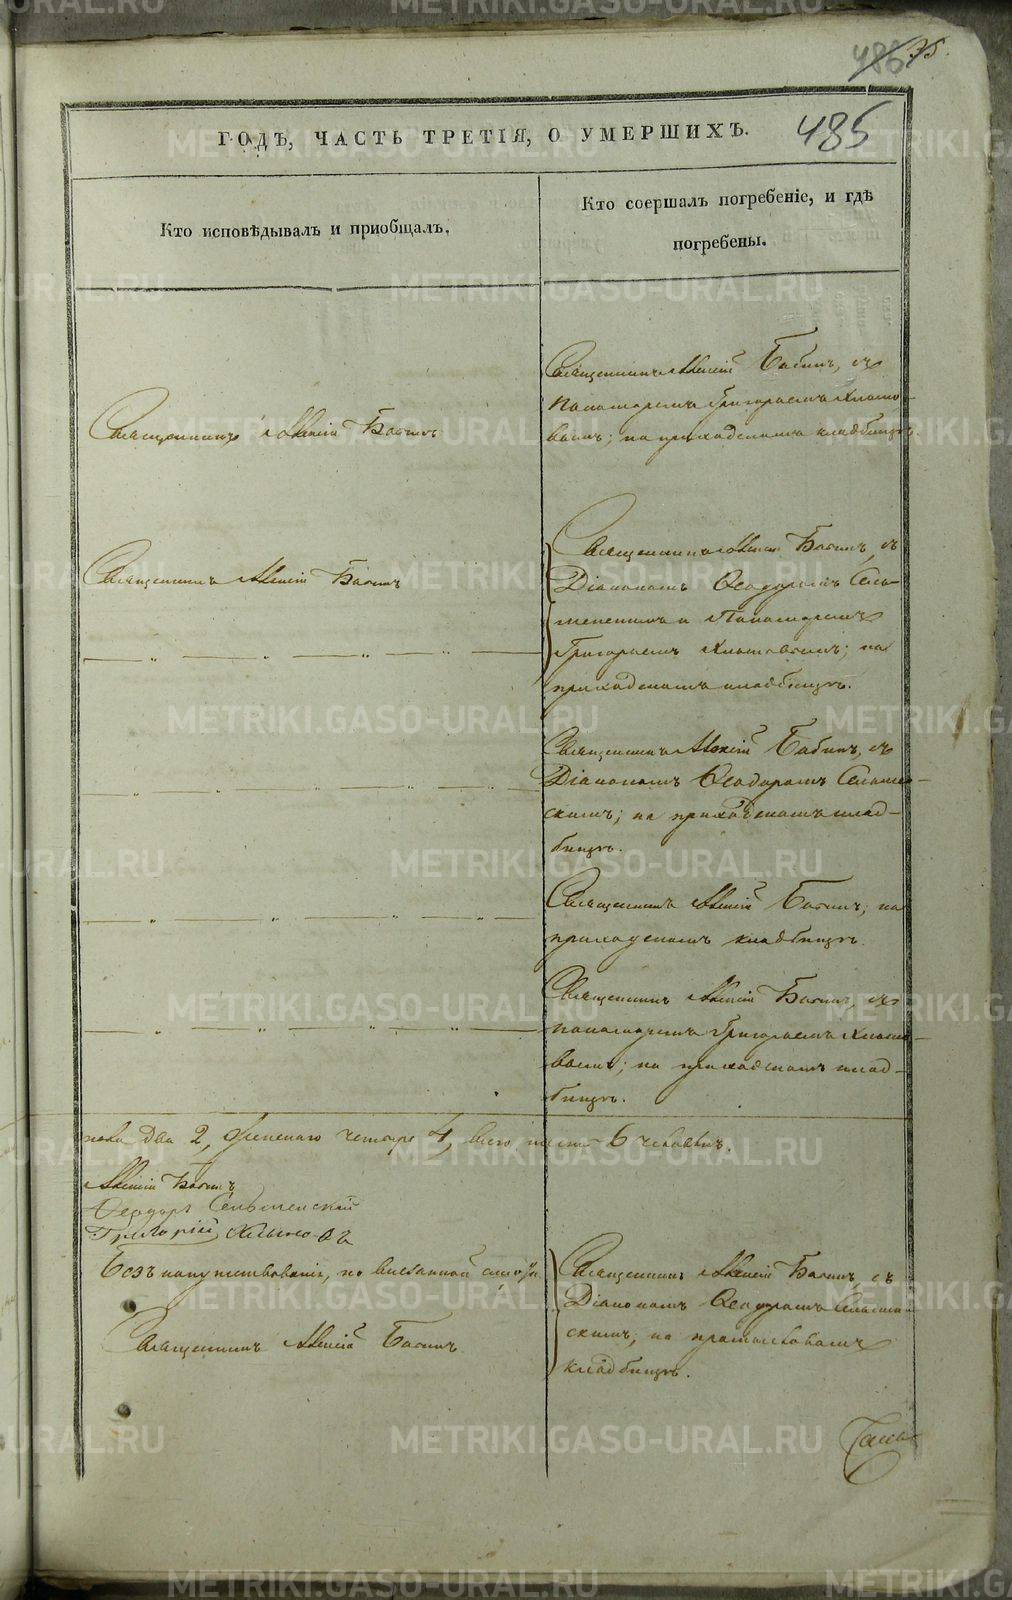 486 35.
485
ГОДЪ, ЧАСТЬ ТРЕТІЯ, О УМЕРШИХЪ.
Кто исповѣдывалъ и приобщалъ.
Кто соершалъ погребеніе, и гдѣ
погребены.
Священникъ Алексій Бабинъ
Священникъ Алексій Бабинъ, съ
Пономаремъ Григорьемъ Хлыно-
вымъ; на приходскомъ кладбищѣ.
Священникъ Алексій Бабинъ
Священникъ Алексій Бабинъ, съ
Діакономъ Ѳеодоромъ
и Пономаремъ
Григорьемъ Хлыновымъ; на
приходскомъ кладбищѣ.
Священникъ Алексій Бабинъ, съ
Діакономъ Ѳеодоромъ
скимъ; на приходскомъ клад-
бищѣ.
Священникъ Алексій Бабинъ; на
приходскомъ кладбищѣ.
Священникъ Алексій Бабинъ, съ
пономаремъ Григорьемъ Хлыно-
вымъ; на приходскомъ клад-
бищѣ.
пола два 2, женскаго четыре 4, всего шесть 6 человѣкъ.
Алексій Бабинъ
Ѳеодоръ
Григорій Хлыновъ
Безъ напутствованія, по внезапной смерти
Священникъ Алексій Бабинъ
Священникъ Алексій Бабинъ, съ
Діакономъ Ѳеодоромъ
скимъ; на
кладбищѣ.
METRIKI.GASO-URAL.RU